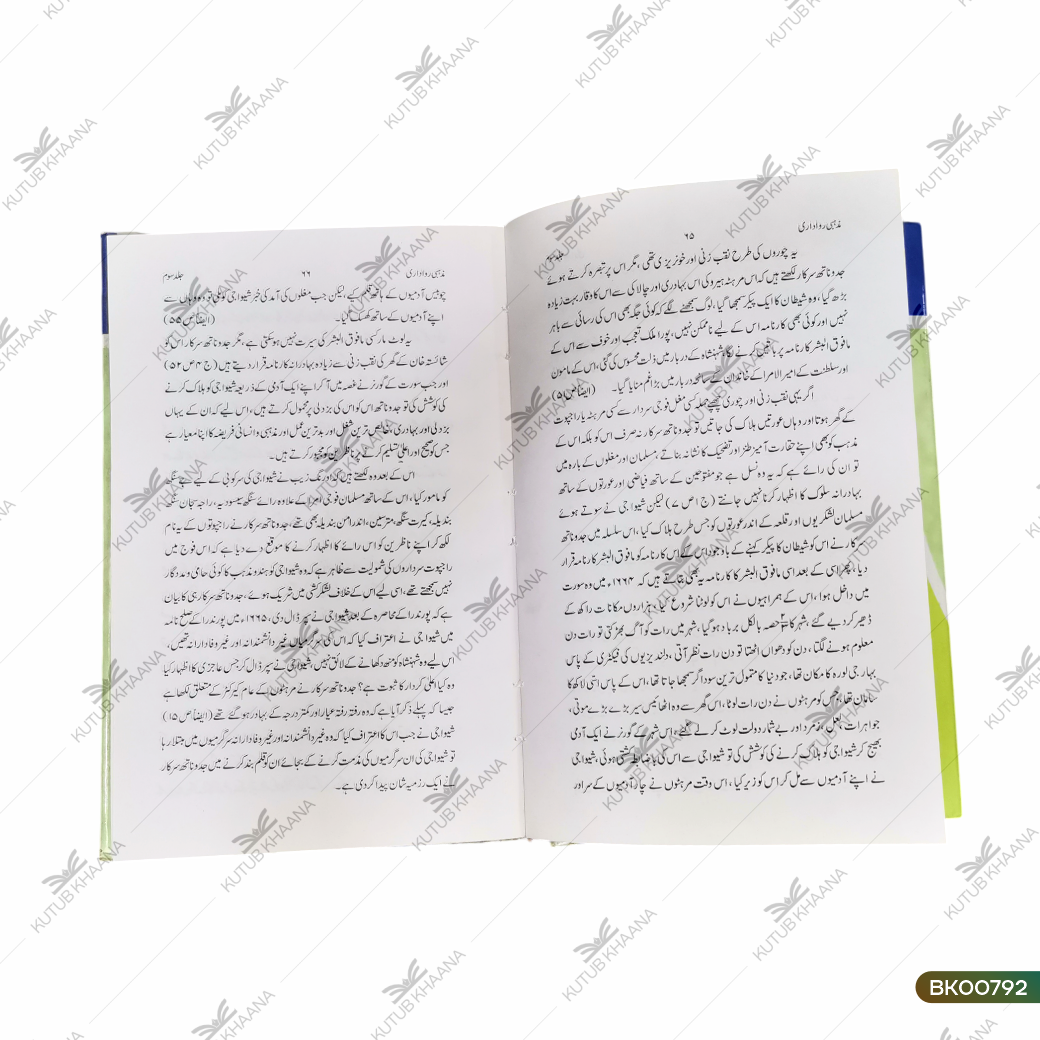 مذہبی رواداری
۶۵
جلد سوم
یہ چوروں کی طرح نقب زنی اور خونریزی تھی، مگر اس پر تبصرہ کرتے ہوئے
جدوناتھ سرکار لکھتے ہیں کہ اس مرہٹہ ہیرو کی اس بہادری اور چالاکی سے اس کا وقار بہت زیادہ
بڑھ گیا، وہ شیطان کا ایک پیکر سمجھا گیا، لوگ سمجھنے لگے کہ کوئی جگہ بھی اس کی رسائی سے باہر
نہیں اور کوئی بھی کارنامہ اس کے لیے ناممکن نہیں، پورا ملک تعجب اور خوف سے اس کے
مافوق البشر کارنامہ پر باتیں کرنے لگا، شہنشاہ کے دربار میں ذلت محسوس کی گئی، اس کے ماموں
اور سلطنت کے امیر الامرا کے خاندان کے سانحہ دربار میں بڑا غم منایا گیا۔ (ایضاً ص ۵۱)
اگر یہی نقب زنی اور چوری چھپے حملہ کسی مغل فوجی سردار سے کسی مرہٹہ یا راجپوت
کے گھر ہوتا اور وہاں عورتیں ہلاک کی جاتیں تو جدوناتھ سرکار نہ صرف اس کو بلکہ اس کے
مذہب کو بھی اپنے حقارت آمیز طنز اور تضحیک کا نشانہ بناتے، مسلمان اور مغلوں کے بارہ میں
تو ان کی رائے ہے کہ یہ وہ نسل ہے جو مفتوحین کے ساتھ فیاضی اور عورتوں کے ساتھ
بہادرانہ سلوک کا اظہار کرنا نہیں جانتے (ج ا ص ۷) لیکن شیواجی نے سوتے ہوئے
مسلمان لشکریوں اور قلعہ کے اندر عورتوں کو جس طرح ہلاک کیا، اس سلسلہ میں جدوناتھ
سرکار نے اس کو شیطان کا پیکر کہنے کے باوجود اس کے اس کارنامہ کو مافوق البشر کارنامہ قرار
دیا، پھر اسی کے بعد اسی مافوق البشر کا کارنامہ یہ بھی بتاتے ہیں کہ ۱۶۶۴ء میں وہ سورت
میں داخل ہوا، اس کے ہمراہیوں نے اس کو لوٹنا شروع کیا، ہزاروں مکانات راکھ کے
ڈھیر کر دیے گئے، شہر کا حصہ بالکل برباد ہو گیا، شہر میں رات کو آگ بھڑکتی تو رات دن
معلوم ہونے لگتا، دن کو دھواں اٹھتا تو دن رات نظر آتی، ولندیزیوں کی فیکٹری کے پاس
بہارجی بورہ کا مکان تھا، جو دنیا کا متمول ترین سوداگر سمجھا جاتا تھا، اس کے پاس اسّی لاکھ کا
سامان تھا، جس کو مرہٹوں نے دن رات لوٹا، اس گھر سے وہ اٹھائیس سیر بڑے بڑے موتی،
جواہرات، لعل، زمرد اور بے شمار دولت لوٹ کر لے گئے، اس شہر کے گورنر نے ایک آدمی
بھیج کر شیواجی کو ہلاک کرنے کی کوشش کی تو شیواجی سے اس کی باضابطہ کشتی ہوئی، شیواجی
نے اپنے آدمیوں سے مل کر اس کو زیر کیا، اس وقت مرہٹوں نے چار آدمیوں کے سر اور
مذہبی رواداری
۶۶
جلد سوم
چوبیس آدمیوں کے ہاتھ قلم کیے، لیکن جب مغلوں کی آمد کی خبر شیواجی کو ملی تو وہ وہاں سے
اپنے آدمیوں کے ساتھ کھسک گیا۔ (ایضاً ص ۵۵)
یہ لوٹ مار کسی مافوق البشر کی سیرت نہیں ہو سکتی ہے، مگر جدوناتھ سرکار اس کو
شائستہ خان کے گھر کی نقب زنی سے زیادہ بہادرانہ کارنامہ قرار دیتے ہیں (ج ۴ ص ۵۲)
اور جب سورت کے گورنر نے غصہ میں آ کر اپنے ایک آدمی کے ذریعہ شیواجی کو ہلاک کرنے
کی کوشش کی تو جدوناتھ اس کو اس کی بزدلی پر محمول کرتے ہیں، اس لیے کہ ان کے یہاں
بزدلی اور بہادری، خالص ترین شغل اور بدترین عمل اور مذہبی و انسانی فریضہ کا اپنا معیار ہے
جس کو صحیح اور اعلیٰ تسلیم کرنے پر ناظرین کو مجبور کرتے ہیں۔
اس کے بعد وہ لکھتے ہیں کہ اورنگ زیب نے شیواجی کی سرکوبی کے لیے جے سنگھ
کو مامور کیا، اس کے ساتھ مسلمان فوجی امرا کے علاوہ رائے سنگھ سیسودیہ، راجہ سجان سنگھ
بندیلہ، کیرت سنگھ، مترسین، اندرامن بندیلہ بھی تھے، جدوناتھ سرکار نے راجپوتوں کے یہ نام
لکھ کر اپنے ناظرین کو اس رائے کا اظہار کرنے کا موقع دے دیا ہے کہ اس فوج میں
راجپوت سرداروں کی شمولیت سے ظاہر ہے کہ وہ شیواجی کو ہندو مذہب کا کوئی حامی و مددگار
نہیں سمجھتے تھے، اسی لیے اس کے خلاف لشکر کشی میں شریک ہوئے، جدوناتھ سرکار ہی کا بیان
ہے کہ پورندر کے محاصرہ کے بعد شیواجی نے سپر ڈال دی، ۱۶۶۵ء میں پورندر کے صلح نامہ
میں شیواجی نے اعتراف کیا کہ اس کی سرگرمیاں غیر دانشمندانہ اور غیر وفادارانہ تھیں،
اس لیے وہ شہنشاہ کو منھ دکھانے کے لائق نہیں، شیواجی نے سپر ڈال کر جس عاجزی کا اظہار کیا
وہ کیا اعلیٰ کردار کا ثبوت ہے؟ جدوناتھ سرکار نے مرہٹوں کے عام کیرکٹر کے متعلق لکھا ہے
جیسا کہ پہلے ذکر آیا ہے کہ وہ رفتہ رفتہ عیار اور کمتر درجہ کے بہادر ہو گئے تھے (ایضاً ص ۱۵)
شیواجی نے جب اس کا اعتراف کیا کہ وہ غیر دانشمندانہ اور غیر وفادارانہ سرگرمیوں میں مبتلا رہا
تو شیواجی کی ان سرگرمیوں کی مذمت کرنے کے بجائے ان کو قلم بند کرنے میں جدوناتھ سرکار
نے ایک رزمیہ شان پیدا کر دی ہے۔
KUTUB KHAANA
BK00792